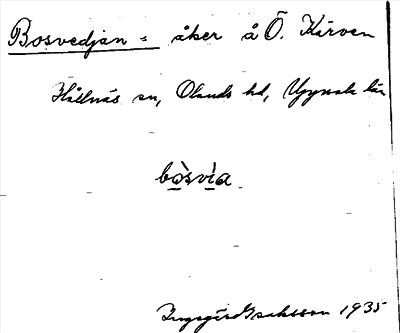 Bosvedjan = åker å Ö. Kärven
Hållnäs sn, Olands hd, Uppsala län
bòsvìa
Ingegärd Isaksson 1935